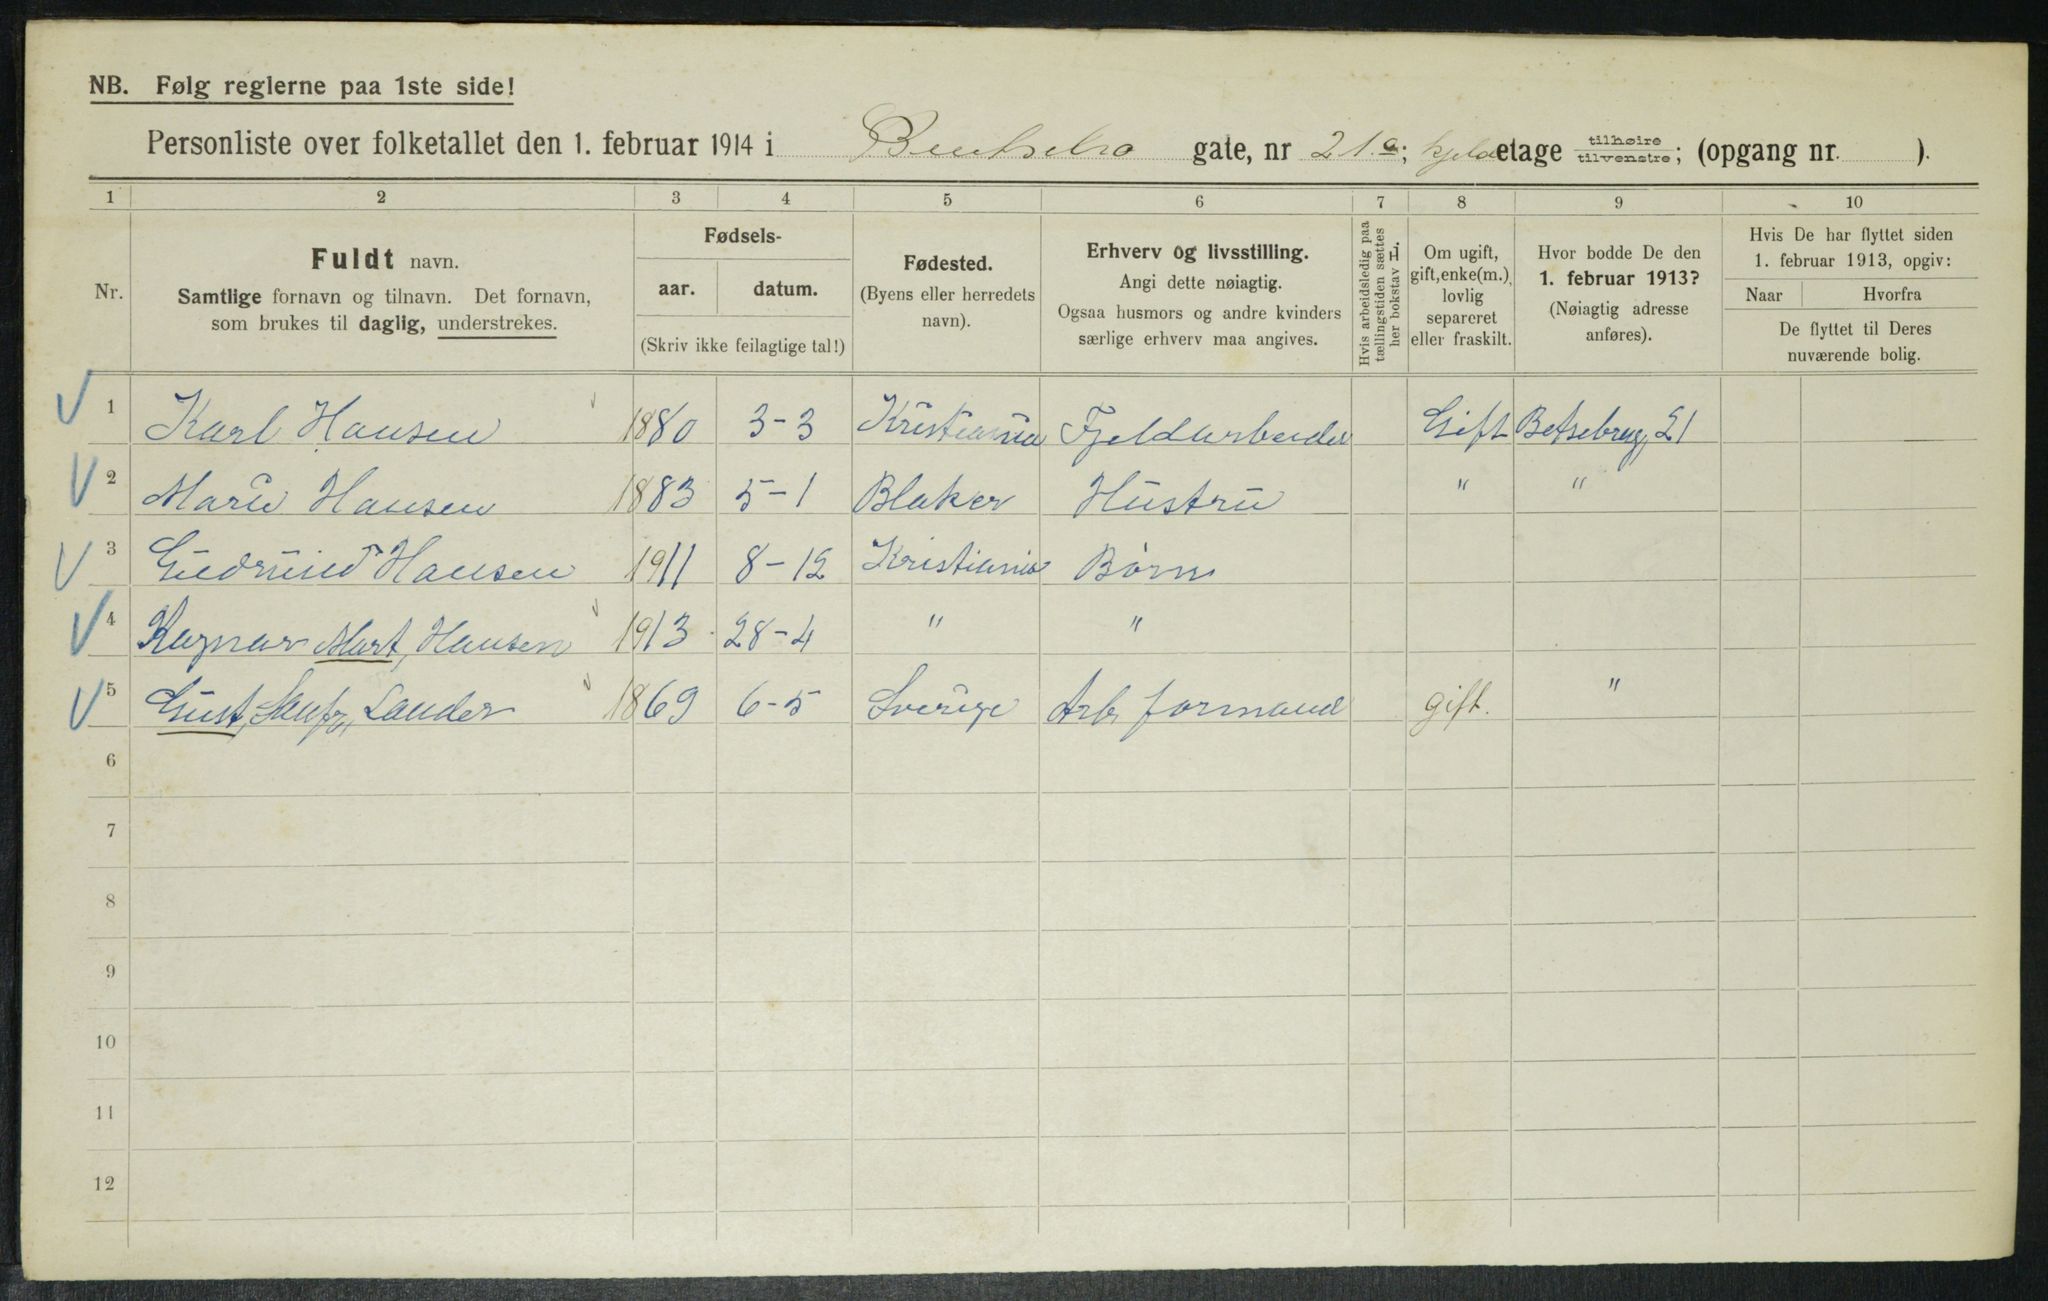 NB. Følg reglerne paa 1ste side!
Personliste over folketallet den 1. februar 1914 i Bentsebro gate, nr 21 a; kjeld etage tilhøire tilvenstre; (opgang nr. ).
1 2 3 4 5 6 7 8 9 10
Nr.
Fuldt navn.
Samtlige fornavn og tilnavn. Det fornavn,
som brukes til daglig, understrekes.
Fødsels-
aar. datum.
(Skriv ikke feilagtige tal!)
Fødested.
(Byens eller herredets
navn).
Erhverv og livsstilling.
Angi dette nøiagtig.
Ogsaa husmors og andre kvinders
særlige erhverv maa angives.
Hvis arbeidsledig paa
tællingstiden sættes
her bokstav L.
Om ugift,
gift, enke(m.),
lovlig
separeret
eller fraskilt.
Hvor bodde De den
1. februar 1913?
(Nøiagtig adresse
anføres).
Hvis De har flyttet siden
1. februar 1913, opgiv:
Naar Hvorfra
De flyttet til Deres
nuværende bolig.
1 Karl Hansen 1880 3-3 Kristiania Fjeldarbeider Gift Betsebrug, 21
2 Marie Hansen 1883 5-1 Blaker Hustru " "
3 Hansen 1911 8-12 Kristiania Børn
4 Ragnar Mart, Hansen 1913 28-4 " "
5 Gust, Lander 1869 6-5 Sverige Arb formand gift. "
6
7
8
9
10
11
12